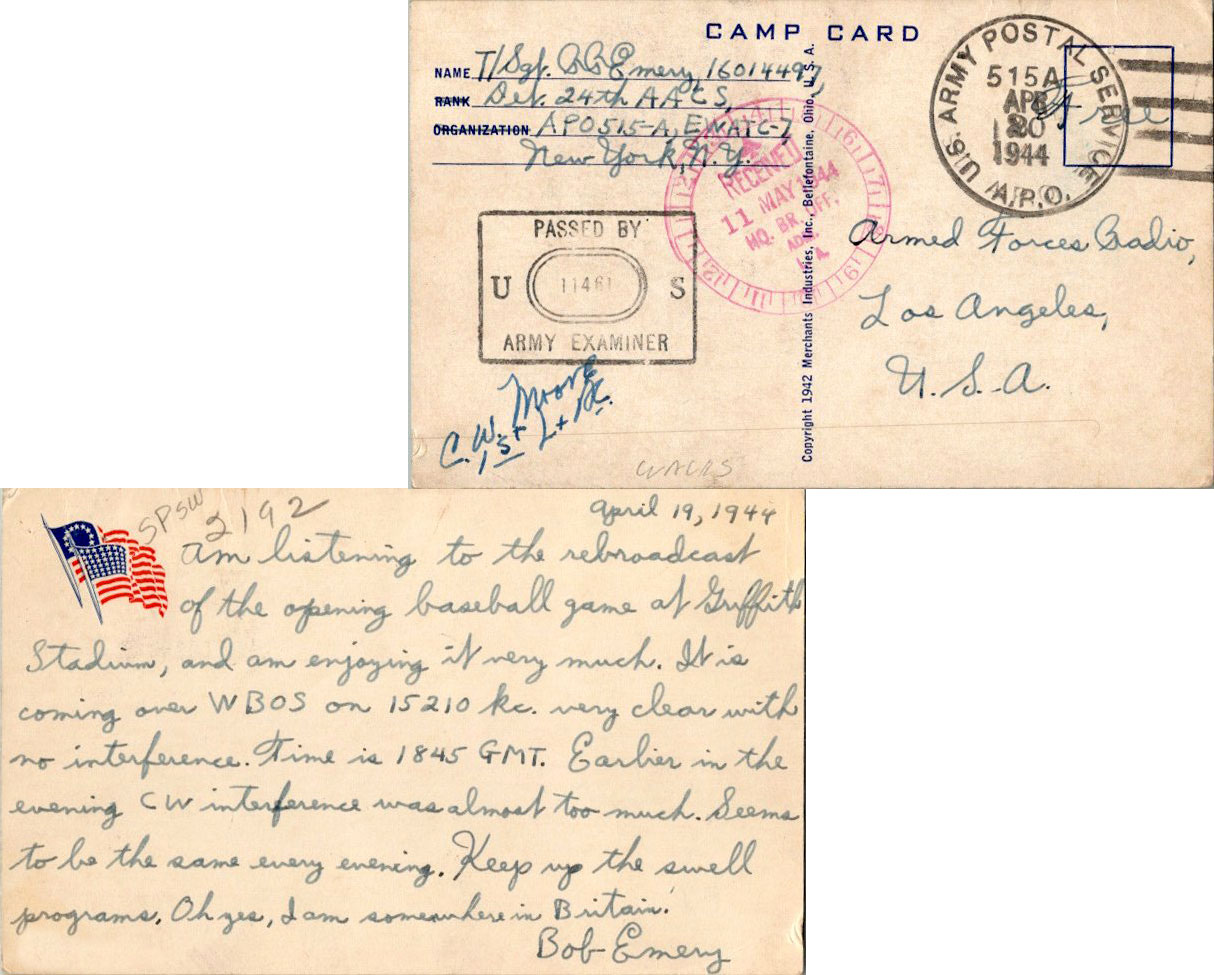 CAMP CARD
NAME T/Sgt. B B Emery, 16014497
RANK Det. 24th AACS,
ORGANIZATION APO 515-A, EWATC-7
New York, N.Y.
U.S. ARMY POSTAL SERVICE
515A
APR
20
1944
A.P.O.
Free
RECEIVED
11 MAY 1944
HQ. BR. OFF.
PASSED BY
U 11461 S
ARMY EXAMINER
C. W. Moore
1st Lt AC.
Copyright 1942 Merchants Industries, Inc., Bellefontaine, Ohio, U.S.A.
Armed Forces Radio,
Los Angeles,
U.S.A.
SPSW
2192
April 19, 1944
Am listening to the rebroadcast
of the opening baseball game at Griffith
Stadium, and am enjoying it very much. It is
coming over WBOS on 15210 kc. very clear with
no interference. Time is 1845 GMT. Earlier in the
evening CW interference was almost too much. Seems
to be the same every evening. Keep up the swell
programs. Oh yes, I am somewhere in Britain.
Bob Emery